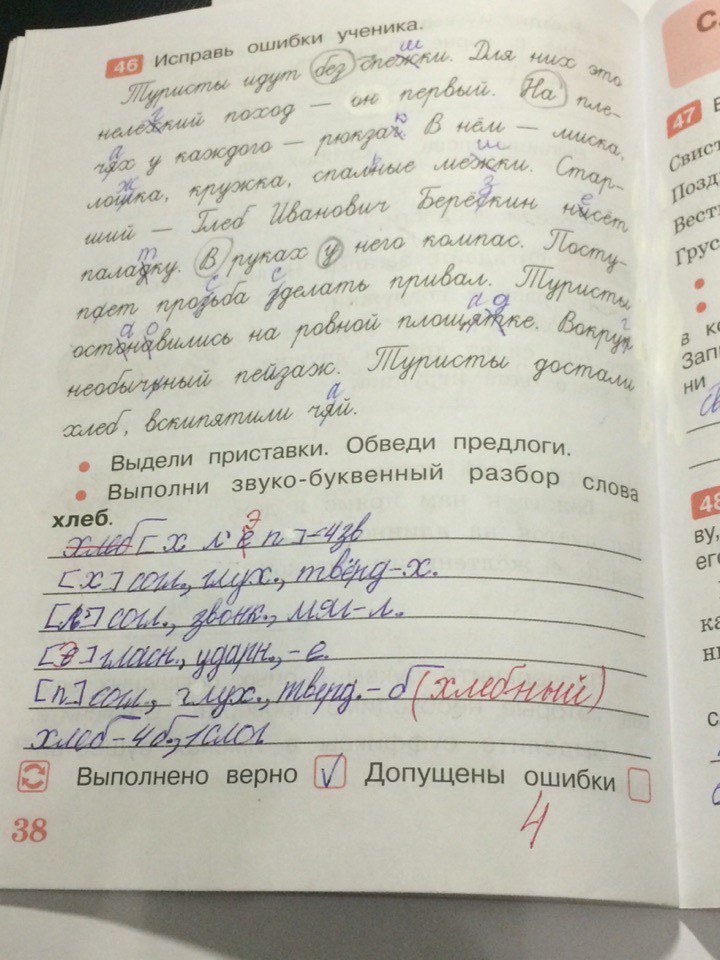 46 Исправь ошибки ученика.
ш
Туристы идут без спежки. Для них это
г
нележкий поход — он первый. На пле-
а к
чях у каждого — рюкзаг. В нём — миска,
ж ь ш
лошка, кружка, спалные межки. Стар-
з е
ший — Глеб Иванович Берёскин нисёт
т
паладку. В руках у него компас. Посту-
с с
пает прозьба зделать привал. Туристы
а о а д г
остонавились на ровной площятке. Вокрук
необычьный пейзаж. Туристы достали
а
хлеб, вскипятили чяй.
• Выдели приставки. Обведи предлоги.
• Выполни звуко-буквенный разбор слова
хлеб.
э
хлеб [х л' е п] - 4зв
[х] согл., глух., твёрд - х.
[л'] согл., звонк., мяг - л.
[э] гласн., ударн., - е.
[п] согл., глух., тверд. - б (хлебный)
хлеб - 4 б., 1 слог
Выполнено верно V Допущены ошибки
4
38
С
47
Свист
Позд
Вест
Грус
в к
Зап
ни
48
ву,
его
ка
ни
с